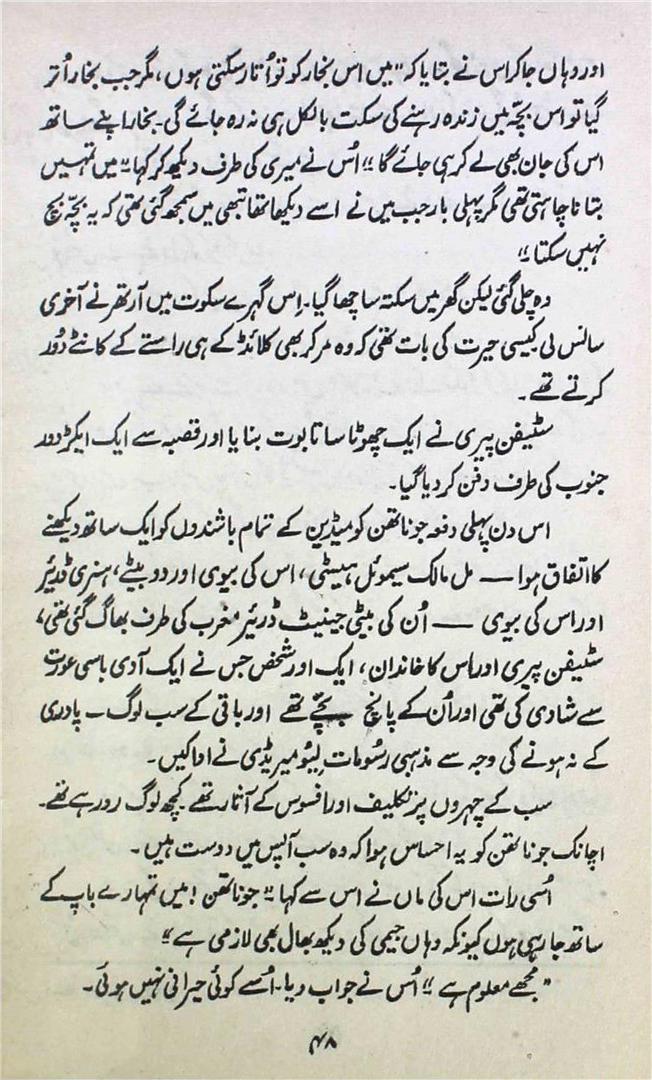 اور وہاں جا کر اس نے بتایا کہ "میں اس بخار کو تو اُتار سکتی ہوں، مگر جب بخار اُتر
گیا تو اس بچّہ میں زندہ رہنے کی سکت بالکل ہی نہ رہ جائے گی۔ بخار اپنے ساتھ
اس کی جان بھی لے کر ہی جائے گا" اُس نے میری کی طرف دیکھ کر کہا "میں تمہیں
بتانا چاہتی تھی مگر پہلی بار جب میں نے اسے دیکھا تھا تبھی میں سمجھ گئی تھی کہ یہ بچّہ بچ
نہیں سکتا"
وہ چلی گئی لیکن گھر میں سکتہ سا چھا گیا۔ اِس گہرے سکوت میں آرتھر نے آخری
سانس لی کیسی حیرت کی بات تھی کہ وہ مر کر بھی کلائڈ کے ہی راستے کے کانٹے دُور
کرتے تھے۔
سٹیفن پیری نے ایک چھوٹا سا تابوت بنایا اور قصبہ سے ایک ایکڑ دور
جنوب کی طرف دفن کر دیا گیا۔
اس دن پہلی دفعہ جوناتھن کو میڈین کے تمام باشندوں کو ایک ساتھ دیکھنے
کا اتفاق ہوا — مل مالک سیموئل ہیسٹی، اس کی بیوی اور دو بیٹے، ہنری ڈریئر
اور اس کی بیوی — اُن کی بیٹی جینیٹ ڈرئیر مغرب کی طرف بھاگ گئی تھی،
سٹیفن پیری اور اس کا خاندان، ایک اور شخص جس نے ایک آدی باسی عورت
سے شادی کی تھی اور اُن کے پانچ بچّے تھے اور باقی کے سب لوگ۔ پادری
کے نہ ہونے کی وجہ سے مذہبی رسُومات لیئو میریڈی نے ادا کیں۔
سب کے چہروں پر تکلیف اور افسوس کے آثار تھے۔ کچھ لوگ رو رہے تھے۔
اچانک جوناتھن کو یہ احساس ہوا کہ وہ سب آپس میں دوست ہیں۔
اُسی رات اس کی ماں نے اس سے کہا "جوناتھن! میں تمہارے باپ کے
ساتھ جا رہی ہوں کیونکہ وہاں جیمی کی دیکھ بھال بھی لازمی ہے"
"مجھے معلوم ہے" اُس نے جواب دیا۔ اُسے کوئی حیرانی نہیں ہوئی۔
۴۸